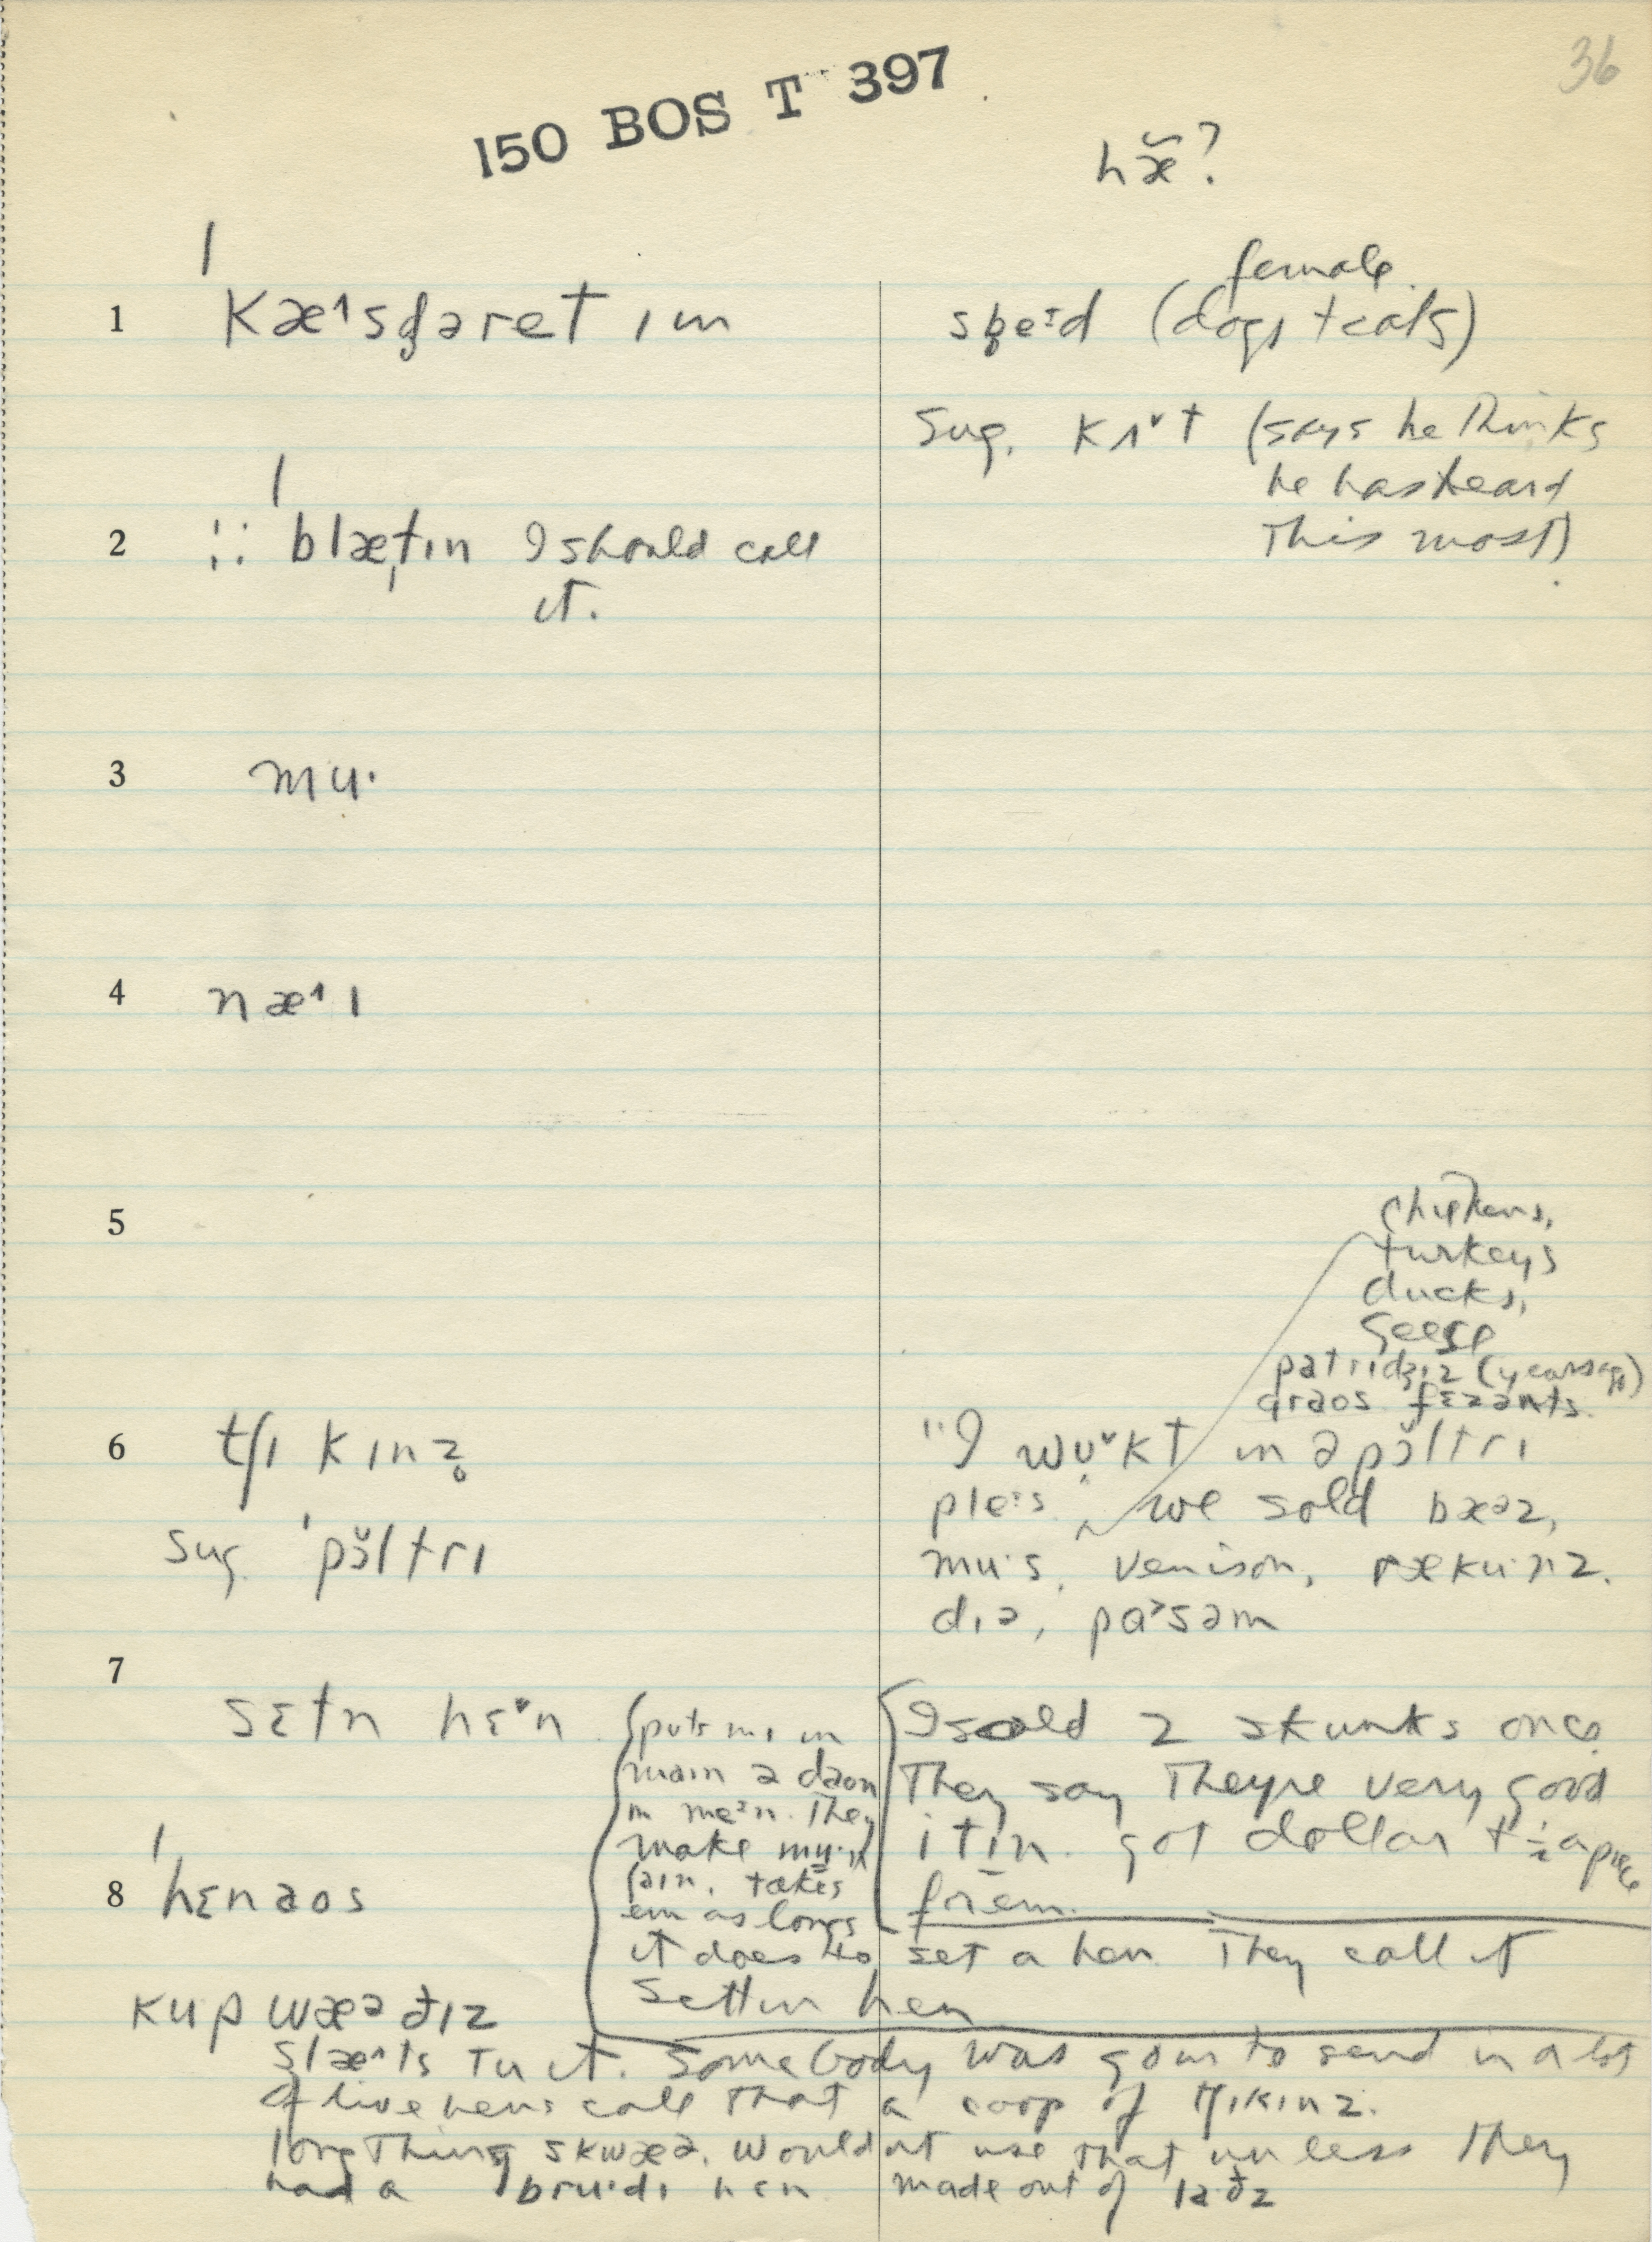 36
150 BOS T 397
hæ̃?
1 ˈkæ˄sg̥əret ɪm
female
sp̬eᶦd (dogs + cats)
sug. kʌ˅t (says he thinks
he has heard
this most)
2 ⁝: ˈblætɪn I should call
it.
3 mu·
4 næ˄ɪ
5
chickens,
turkeys
ducks,
geese
patrɪdʒɪz (years ago)
graos fɛzənts
6 tʃɪkɪnz̥
sug. ˈpɔ̆ltrɪ
"I wʊ˅kt in ə pɔ̆ltrɪ
pleᶦs. we sold bæəz,
mu·s, venison, ræku·nz.
dɪə, pɑ˃səm
7
sɛtn hɛ˅n
(puts mɪ in
main ə daon
in meᶦn. They
make
takes
em as long's
it does to set a hen. They call it
settin hen
I sold 2 skunks once
They say They're very good
itin. got dollar + ½ apiece
for em.
8 ˈhɛnaos
kup wæə ðɪz
slæ˄ts tu it. Somebody was goin to send in a lot
of live hens call that a coop of tʃɪkɪnz.
long Thing skwæə. Wouldnt use that unless they
had a bru·dɪ hɛn made out of